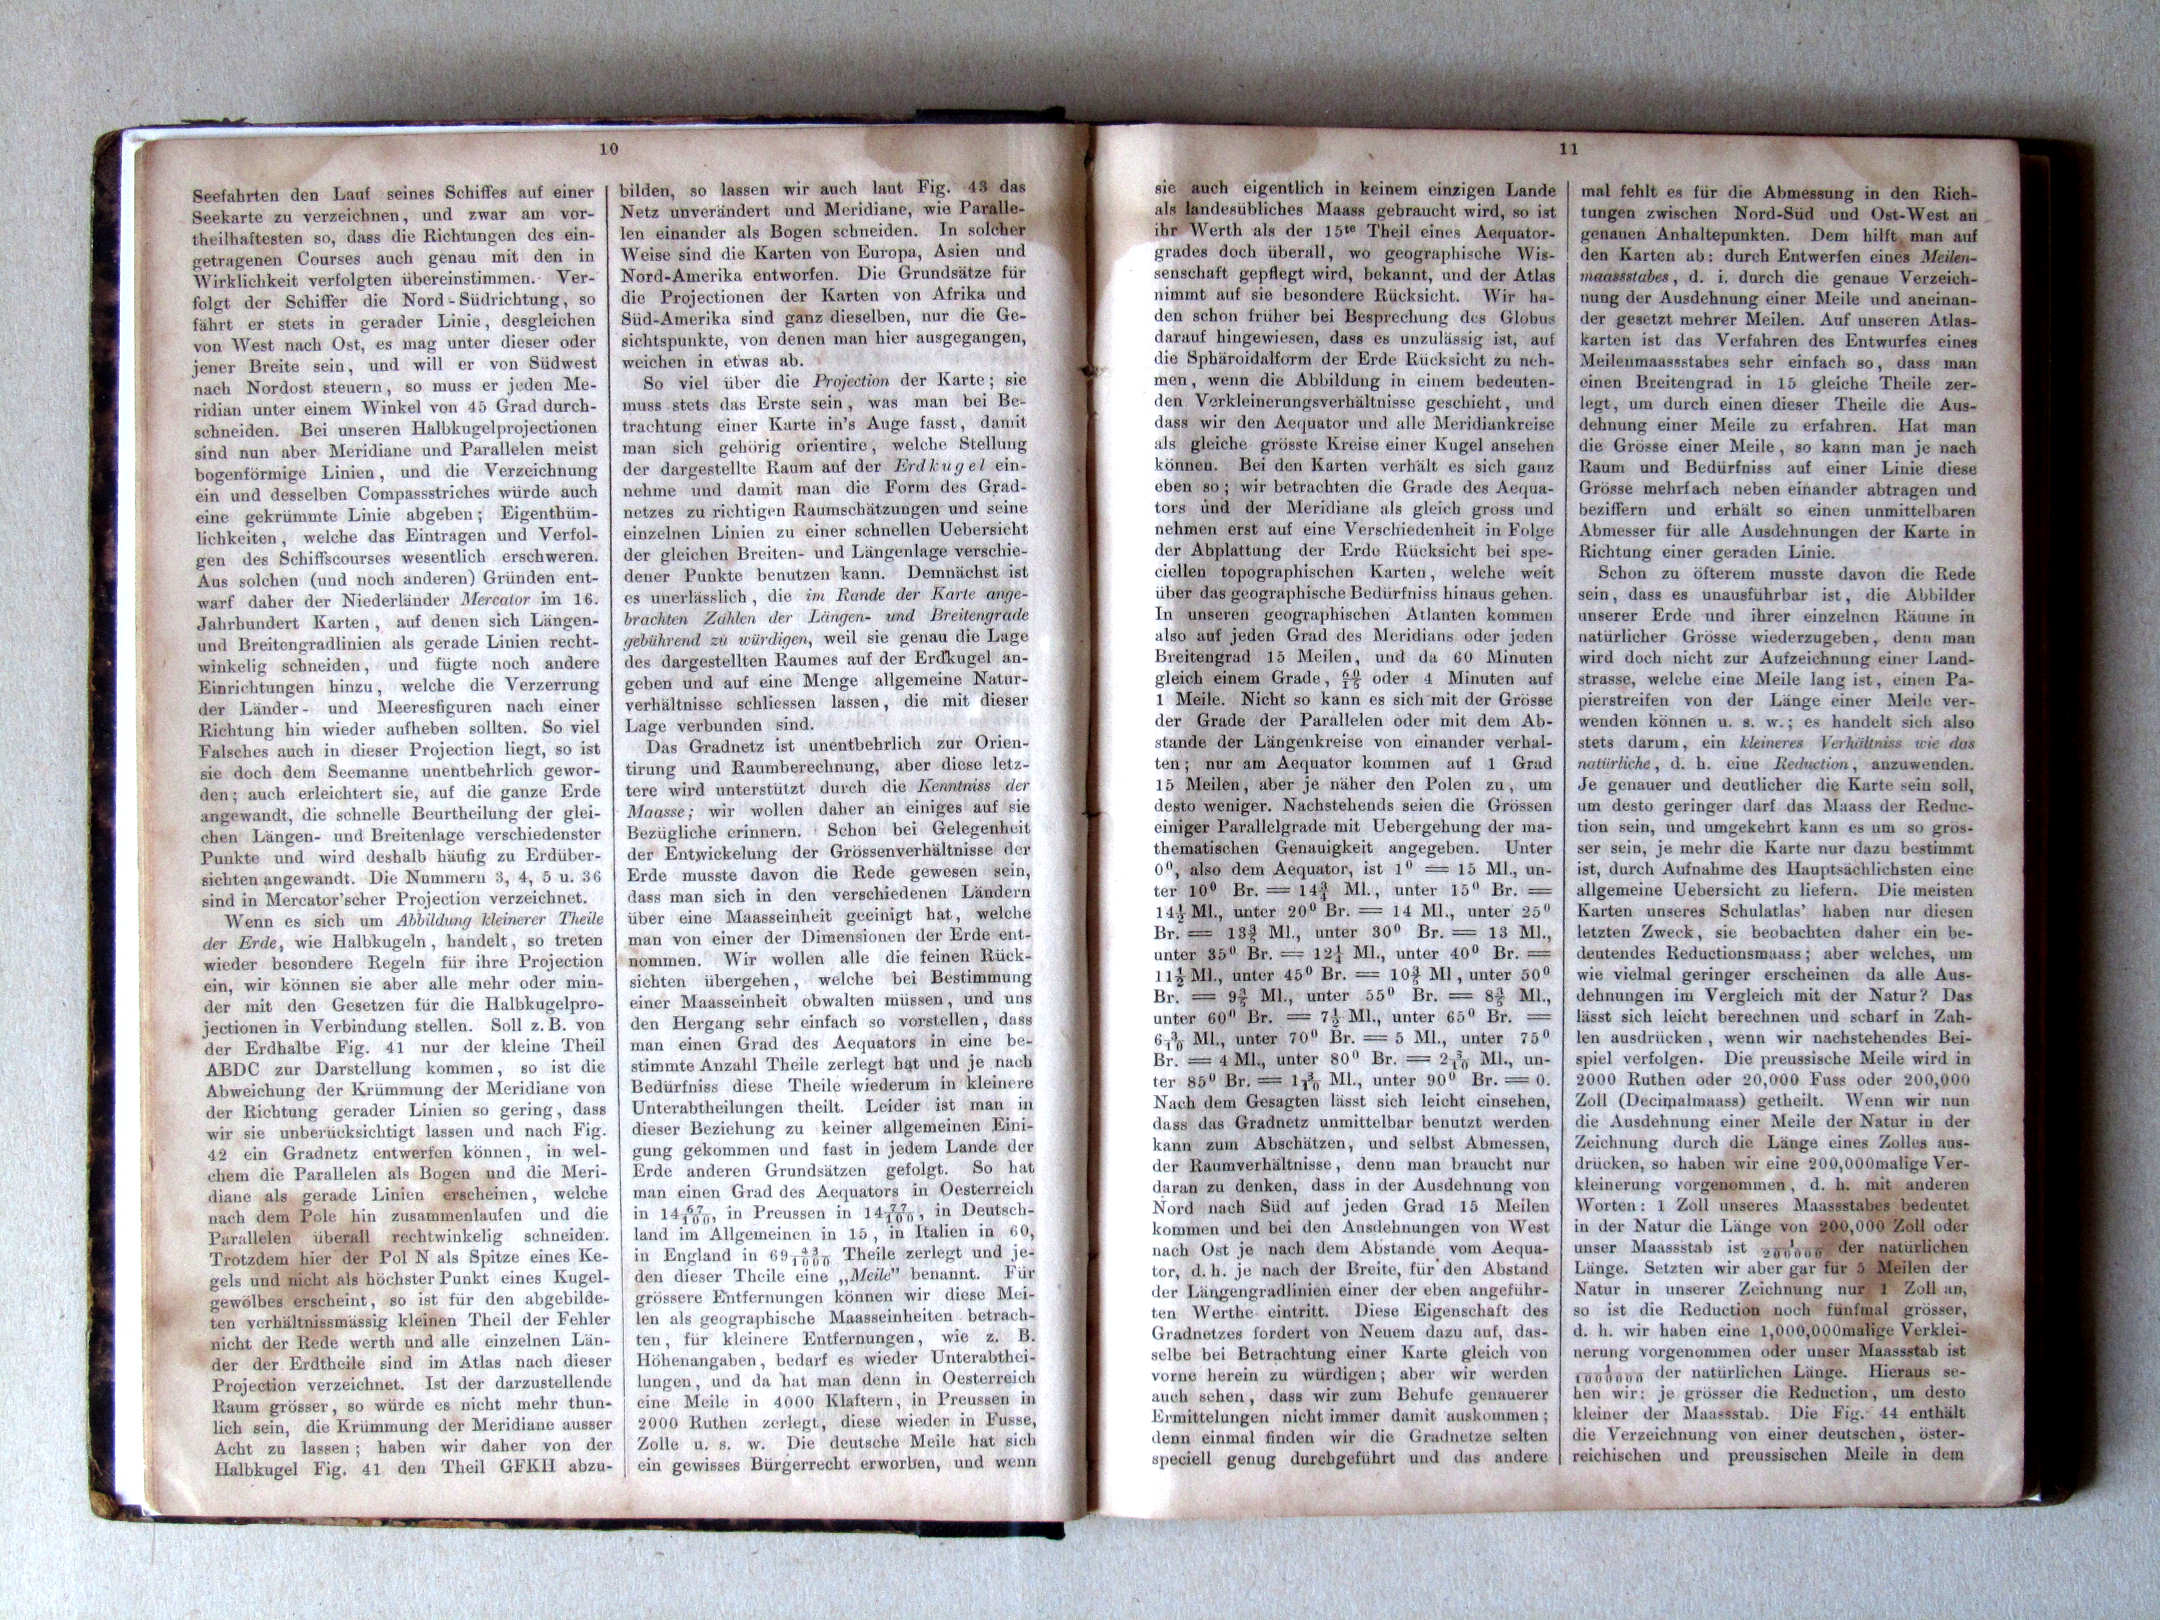 10
Seefahrten den Lauf seines Schiffes auf einer
Seekarte zu verzeichnen, und zwar am vor-
theilhaftesten so, dass die Richtungen des ein-
getragenen Courses auch genau mit den in
Wirklichkeit verfolgten übereinstimmen. Ver-
folgt der Schiffer die Nord-Südrichtung, so
fährt er stets in gerader Linie, desgleichen
von West nach Ost, es mag unter dieser oder
jener Breite sein, und will er von Südwest
nach Nordost steuern, so muss er jeden Me-
ridian unter einem Winkel von 45 Grad durch-
schneiden. Bei unseren Halbkugelprojectionen
sind nun aber Meridiane und Parallelen meist
bogenförmige Linien, und die Verzeichnung
ein und desselben Compassstriches würde auch
eine gekrümmte Linie abgeben; Eigenthüm-
lichkeiten, welche das Eintragen und Verfol-
gen des Schiffscourses wesentlich erschweren.
Aus solchen (und noch anderen) Gründen ent-
warf daher der Niederländer Mercator im 16.
Jahrhundert Karten, auf denen sich Längen-
und Breitengradlinien als gerade Linien recht-
winkelig schneiden, und fügte noch andere
Einrichtungen hinzu, welche die Verzerrung
der Länder- und Meeresfiguren nach einer
Richtung hin wieder aufheben sollten. So viel
Falsches auch in dieser Projection liegt, so ist
sie doch dem Seemanne unentbehrlich gewor-
den; auch erleichtert sie, auf die ganze Erde
angewandt, die schnelle Beurtheilung der glei-
chen Längen- und Breitenlage verschiedenster
Punkte und wird deshalb häufig zu Erdüber-
sichten angewandt. Die Nummern 3, 4, 5 u. 36
sind in Mercator'scher Projection verzeichnet.
Wenn es sich um Abbildung kleinerer Theile
der Erde, wie Halbkugeln, handelt, so treten
wieder besondere Regeln für ihre Projection
ein, wir können sie aber alle mehr oder min-
der mit den Gesetzen für die Halbkugelpro-
jectionen in Verbindung stellen. Soll z. B. von
der Erdhalbe Fig. 41 nur der kleine Theil
ABDC zur Darstellung kommen, so ist die
Abweichung der Krümmung der Meridiane von
der Richtung gerader Linien so gering, dass
wir sie unberücksichtigt lassen und nach Fig.
42 ein Gradnetz entwerfen können, in wel-
chem die Parallelen als Bogen und die Meri-
diane als gerade Linien erscheinen, welche
nach dem Pole hin zusammenlaufen und die
Parallelen überall rechtwinkelig schneiden.
Trotzdem hier der Pol N als Spitze eines Ke-
gels und nicht als höchster Punkt eines Kugel-
gewölbes erscheint, so ist für den abgebilde-
ten verhältnissmässig kleinen Theil der Fehler
nicht der Rede werth und alle einzelnen Län-
der der Erdtheile sind im Atlas nach dieser
Projection verzeichnet. Ist der darzustellende
Raum grösser, so würde es nicht mehr thun-
lich sein, die Krümmung der Meridiane ausser
Acht zu lassen; haben wir daher von der
Halbkugel Fig. 41 den Theil GFKH abzu-
bilden, so lassen wir auch laut Fig. 43 das
Netz unverändert und Meridiane, wie Paralle-
len einander als Bogen schneiden. In solcher
Weise sind die Karten von Europa, Asien und
Nord-Amerika entworfen. Die Grundsätze für
die Projectionen der Karten von Afrika und
Süd-Amerika sind ganz dieselben, nur die Ge-
sichtspunkte, von denen man hier ausgegangen,
weichen in etwas ab.
So viel über die Projection der Karte; sie
muss stets das Erste sein, was man bei Be-
trachtung einer Karte in's Auge fasst, damit
man sich gehörig orientire, welche Stellung
der dargestellte Raum auf der Erdkugel ein-
nehme und damit man die Form des Grad-
netzes zu richtigen Raumschätzungen und seine
einzelnen Linien zu einer schnellen Uebersicht
der gleichen Breiten- und Längenlage verschie-
dener Punkte benutzen kann. Demnächst ist
es unerlässlich, die im Rande der Karte ange-
brachten Zahlen der Längen- und Breitengrade
gebührend zu würdigen, weil sie genau die Lage
des dargestellten Raumes auf der Erdkugel an-
geben und auf eine Menge allgemeine Natur-
verhältnisse schliessen lassen, die mit dieser
Lage verbunden sind.
Das Gradnetz ist unentbehrlich zur Orien-
tirung und Raumberechnung, aber diese letz-
tere wird unterstützt durch die Kenntniss der
Maasse; wir wollen daher an einiges auf sie
Bezügliche erinnern. Schon bei Gelegenheit
der Entwickelung der Grössenverhältnisse der
Erde musste davon die Rede gewesen sein,
dass man sich in den verschiedenen Ländern
über eine Maasseinheit geeinigt hat, welche
man von einer der Dimensionen der Erde ent-
nommen. Wir wollen alle die feinen Rück-
sichten übergehen, welche bei Bestimmung
einer Maasseinheit obwalten müssen, und uns
den Hergang sehr einfach so vorstellen, dass
man einen Grad des Aequators in eine be-
stimmte Anzahl Theile zerlegt hat und je nach
Bedürfniss diese Theile wiederum in kleinere
Unterabtheilungen theilt. Leider ist man in
dieser Beziehung zu keiner allgemeinen Eini-
gung gekommen und fast in jedem Lande der
Erde anderen Grundsätzen gefolgt. So hat
man einen Grad des Aequators in Oesterreich
in 14 67/100, in Preussen in 14 77/100, in Deutsch-
land im Allgemeinen in 15, in Italien in 60,
in England in 69 43/1000 Theile zerlegt und je-
den dieser Theile eine „Meile" benannt. Für
grössere Entfernungen können wir diese Mei-
len als geographische Maasseinheiten betrach-
ten, für kleinere Entfernungen, wie z. B.
Höhenangaben, bedarf es wieder Unterabthei-
lungen, und da hat man denn in Oesterreich
eine Meile in 4000 Klaftern, in Preussen in
2000 Ruthen zerlegt, diese wieder in Fusse,
Zolle u. s. w. Die deutsche Meile hat sich
ein gewisses Bürgerrecht erworben, und wenn
11
sie auch eigentlich in keinem einzigen Lande
als landesübliches Maass gebraucht wird, so ist
ihr Werth als der 15te Theil eines Aequator-
grades doch überall, wo geographische Wis-
senschaft gepflegt wird, bekannt, und der Atlas
nimmt auf sie besondere Rücksicht. Wir ha-
den schon früher bei Besprechung des Globus
darauf hingewiesen, dass es unzulässig ist, auf
die Sphäroidalform der Erde Rücksicht zu neh-
men, wenn die Abbildung in einem bedeuten-
den Verkleinerungsverhältnisse geschieht, und
dass wir den Aequator und alle Meridiankreise
als gleiche grösste Kreise einer Kugel ansehen
können. Bei den Karten verhält es sich ganz
eben so; wir betrachten die Grade des Aequa-
tors und der Meridiane als gleich gross und
nehmen erst auf eine Verschiedenheit in Folge
der Abplattung der Erde Rücksicht bei spe-
ciellen topographischen Karten, welche weit
über das geographische Bedürfniss hinaus gehen.
In unseren geographischen Atlanten kommen
also auf jeden Grad des Meridians oder jeden
Breitengrad 15 Meilen, und da 60 Minuten
gleich einem Grade, 60/15 oder 4 Minuten auf
1 Meile. Nicht so kann es sich mit der Grösse
der Grade der Parallelen oder mit dem Ab-
stande der Längenkreise von einander verhal-
ten; nur am Aequator kommen auf 1 Grad
15 Meilen, aber je näher den Polen zu, um
desto weniger. Nachstehends seien die Grössen
einiger Parallelgrade mit Uebergehung der ma-
thematischen Genauigkeit angegeben. Unter
0⁰, also dem Aequator, ist 1⁰ = 15 Ml., un-
ter 10⁰ Br. = 14¾ Ml., unter 15⁰ Br. =
14½ Ml., unter 20⁰ Br. = 14 Ml., unter 25⁰
Br. = 13⅗ Ml., unter 30⁰ Br. = 13 Ml.,
unter 35⁰ Br. = 12¼ Ml., unter 40⁰ Br. =
11½ Ml., unter 45⁰ Br. = 10⅗ Ml, unter 50⁰
Br. = 9⅗ Ml., unter 55⁰ Br. = 8⅗ Ml.,
unter 60⁰ Br. = 7½ Ml., unter 65⁰ Br. =
6 3/10 Ml., unter 70⁰ Br. = 5 Ml., unter 75⁰
Br. = 4 Ml., unter 80⁰ Br. = 2 3/10 Ml., un-
ter 85⁰ Br. = 1 3/10 Ml., unter 90⁰ Br. = 0.
Nach dem Gesagten lässt sich leicht einsehen,
dass das Gradnetz unmittelbar benutzt werden
kann zum Abschätzen, und selbst Abmessen,
der Raumverhältnisse, denn man braucht nur
daran zu denken, dass in der Ausdehnung von
Nord nach Süd auf jeden Grad 15 Meilen
kommen und bei den Ausdehnungen von West
nach Ost je nach dem Abstande vom Aequa-
tor, d. h. je nach der Breite, für den Abstand
der Längengradlinien einer der eben angeführ-
ten Werthe eintritt. Diese Eigenschaft des
Gradnetzes fordert von Neuem dazu auf, das-
selbe bei Betrachtung einer Karte gleich von
vorne herein zu würdigen; aber wir werden
auch sehen, dass wir zum Behufe genauerer
Ermittelungen nicht immer damit auskommen;
denn einmal finden wir die Gradnetze selten
speciell genug durchgeführt und das andere
mal fehlt es für die Abmessung in den Rich-
tungen zwischen Nord-Süd und Ost-West an
genauen Anhaltepunkten. Dem hilft man auf
den Karten ab: durch Entwerfen eines Meilen-
maassstabes, d. i. durch die genaue Verzeich-
nung der Ausdehnung einer Meile und aneinan-
der gesetzt mehrer Meilen. Auf unseren Atlas-
karten ist das Verfahren des Entwurfes eines
Meilenmaassstabes sehr einfach so, dass man
einen Breitengrad in 15 gleiche Theile zer-
legt, um durch einen dieser Theile die Aus-
dehnung einer Meile zu erfahren. Hat man
die Grösse einer Meile, so kann man je nach
Raum und Bedürfniss auf einer Linie diese
Grösse mehrfach neben einander abtragen und
beziffern und erhält so einen unmittelbaren
Abmesser für alle Ausdehnungen der Karte in
Richtung einer geraden Linie.
Schon zu öfterem musste davon die Rede
sein, dass es unausführbar ist, die Abbilder
unserer Erde und ihrer einzelnen Räume in
natürlicher Grösse wiederzugeben, denn man
wird doch nicht zur Aufzeichnung einer Land-
strasse, welche eine Meile lang ist, einen Pa-
pierstreifen von der Länge einer Meile ver-
wenden können u. s. w.; es handelt sich also
stets darum, ein kleineres Verhältniss wie das
natürliche, d. h. eine Reduction, anzuwenden.
Je genauer und deutlicher die Karte sein soll,
um desto geringer darf das Maass der Reduc-
tion sein, und umgekehrt kann es um so grös-
ser sein, je mehr die Karte nur dazu bestimmt
ist, durch Aufnahme des Hauptsächlichsten eine
allgemeine Uebersicht zu liefern. Die meisten
Karten unseres Schulatlas' haben nur diesen
letzten Zweck, sie beobachten daher ein be-
deutendes Reductionsmaass; aber welches, um
wie vielmal geringer erscheinen da alle Aus-
dehnungen im Vergleich mit der Natur? Das
lässt sich leicht berechnen und scharf in Zah-
len ausdrücken, wenn wir nachstehendes Bei-
spiel verfolgen. Die preussische Meile wird in
2000 Ruthen oder 20,000 Fuss oder 200,000
Zoll (Decimalmaass) getheilt. Wenn wir nun
die Ausdehnung einer Meile der Natur in der
Zeichnung durch die Länge eines Zolles aus-
drücken, so haben wir eine 200,000malige Ver-
kleinerung vorgenommen, d. h. mit anderen
Worten: 1 Zoll unseres Maassstabes bedeutet
in der Natur die Länge von 200,000 Zoll oder
unser Maassstab ist 1/200000 der natürlichen
Länge. Setzten wir aber gar für 5 Meilen der
Natur in unserer Zeichnung nur 1 Zoll an,
so ist die Reduction noch fünfmal grösser,
d. h. wir haben eine 1,000,000malige Verklei-
nerung vorgenommen oder unser Maassstab ist
1/1000000 der natürlichen Länge. Hieraus se-
hen wir: je grösser die Reduction, um desto
kleiner der Maassstab. Die Fig. 44 enthält
die Verzeichnung von einer deutschen, öster-
reichischen und preussischen Meile in dem